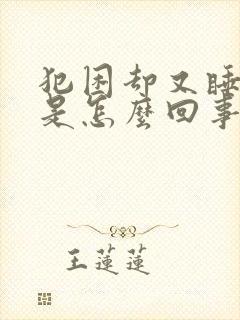 犯困却又睡
是怎麼回事
王蓮蓮